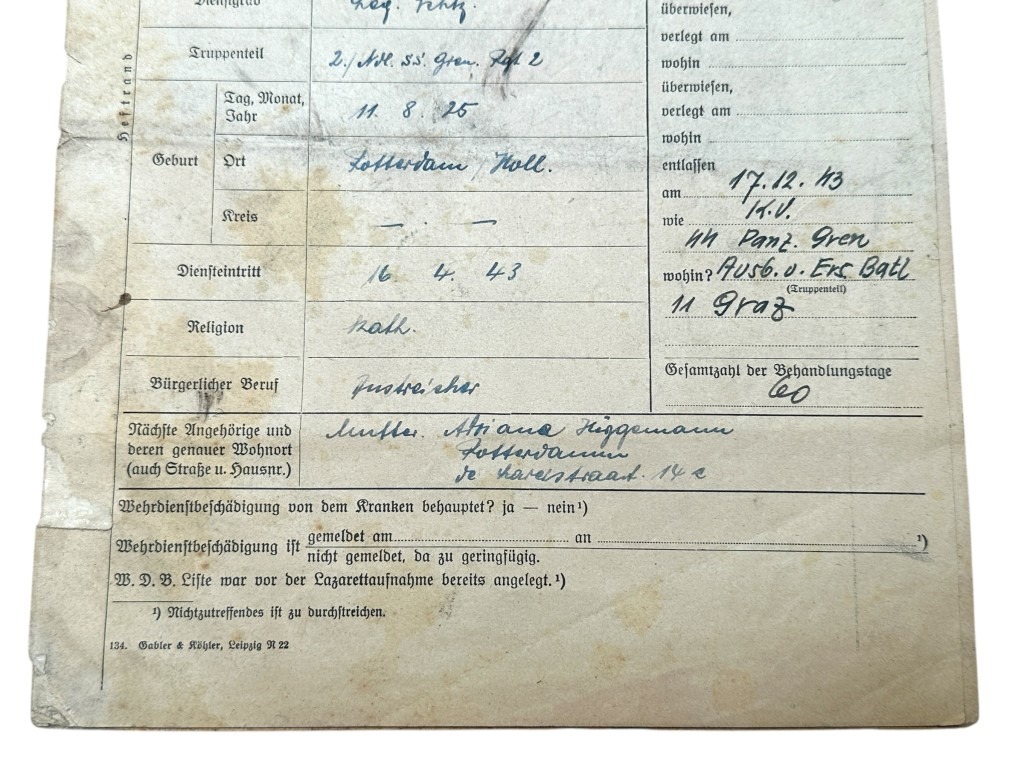 Dienstgrad
Truppenteil 2./ Ndl. SS. Gren. Rgt 2
Heftrand
Geburt
Tag, Monat, Jahr 11. 8. 25
Ort Rotterdam / Holl.
Kreis — . —
Diensteintritt 16. 4. 43
Religion Kath.
Bürgerlicher Beruf Anstreicher
Nächste Angehörige und
deren genauer Wohnort
(auch Straße u. Hausnr.)
Mutter. Adriana
Rotterdamm
de 14 c
überwiesen,
verlegt am
wohin
überwiesen,
verlegt am
wohin
entlassen
am 17.12.43
wie K.V.
SS Panz. Gren
wohin? Ausb. u. Ers. Batl
(Truppenteil)
11 Graz
Gesamtzahl der Behandlungstage
60
Wehrdienstbeschädigung von dem Kranken behauptet? ja — nein¹)
Wehrdienstbeschädigung ist gemeldet am an ¹)
nicht gemeldet, da zu geringfügig.
W. D. B. Liste war vor der Lazarettaufnahme bereits angelegt.¹)
¹) Nichtzutreffendes ist zu durchstreichen.
134. Gabler & Köhler, Leipzig N 22